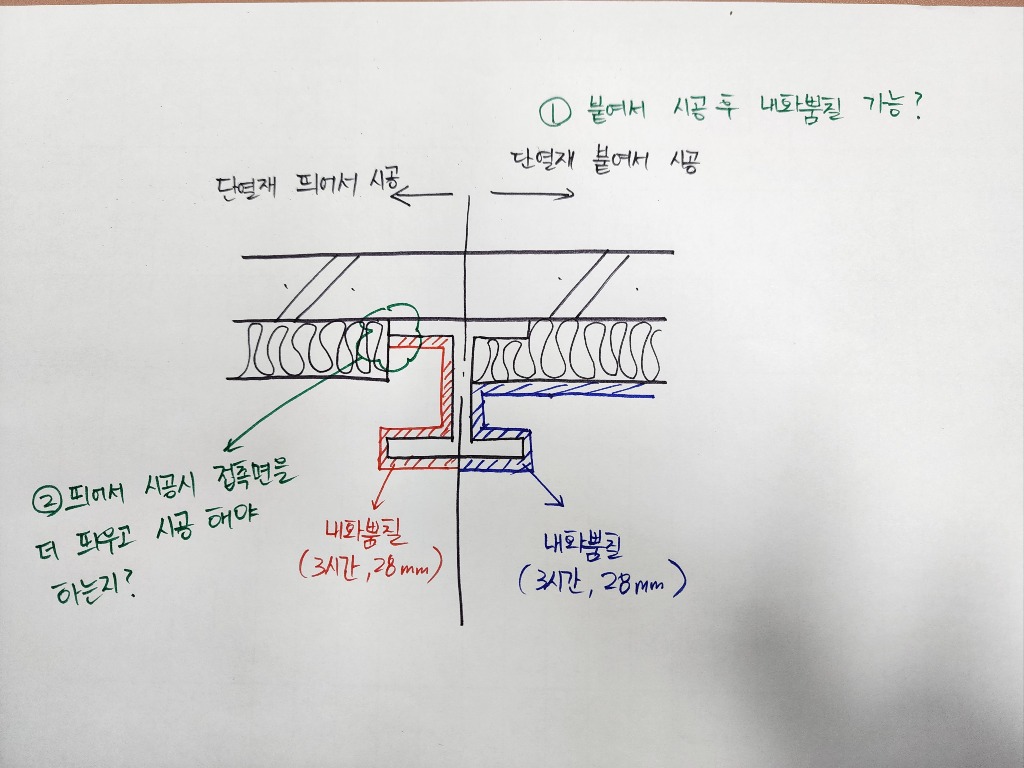 ① 붙여서 시공 후 내화뿜칠 가능?
단열재 붙여서 시공
단열재 띄어서 시공
② 띄어서 시공시 접촉면을
더 띄우고 시공 해야
하는지?
내화뿜칠
(3시간, 28mm)
내화뿜칠
(3시간, 28mm)